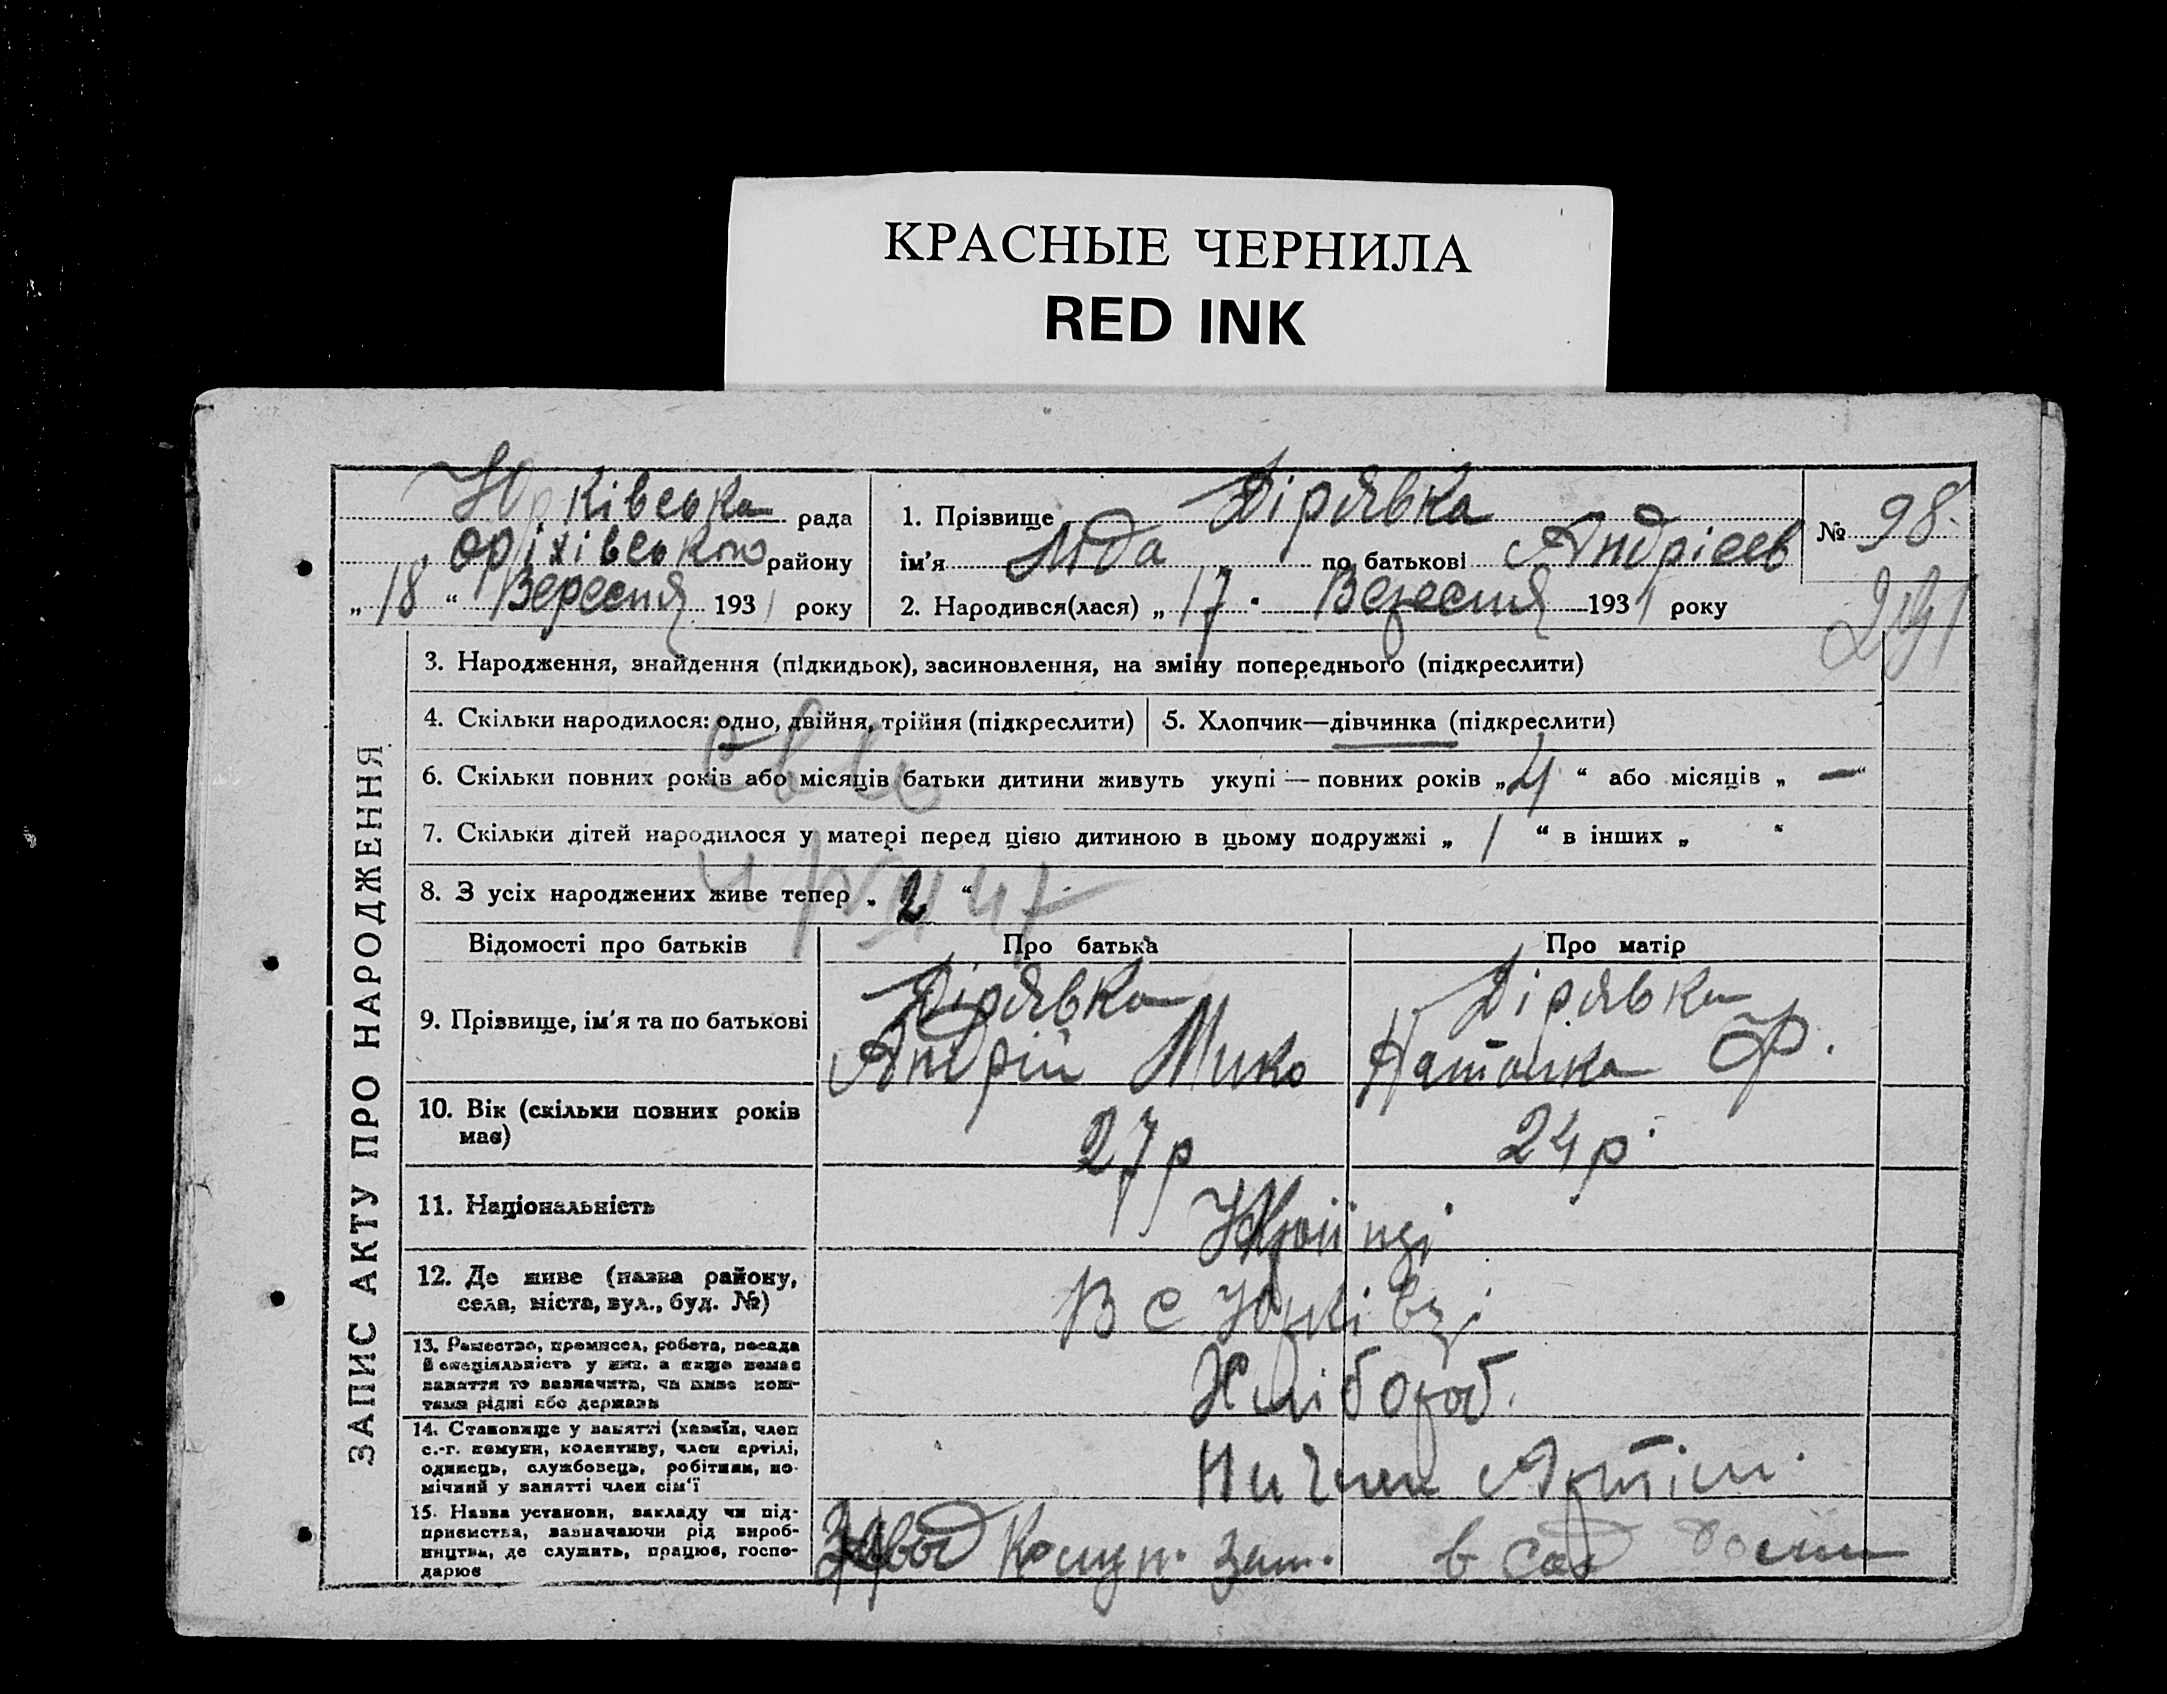 КРАСНЫЕ ЧЕРНИЛА
RED INK
Юрківська рада
оріхівського району
„ 18 “ Вересня 1931 року
1. Прізвище Дірявка
ім'я Ліда по батькові Андрієв
2. Народився(лася) „ 17 " Вересня 1931 року
№ 98.
291
ЗАПИС АКТУ ПРО НАРОДЖЕННЯ
3. Народження, знайдення (підкидьок), засиновлення, на зміну попереднього (підкреслити)
4. Скільки народилося: одно, двійня, трійня (підкреслити)
5. Хлопчик—дівчинка (підкреслити)
6. Скільки повних років або місяців батьки дитини живуть укупі — повних років „ 4 “ або місяців „ — “
7. Скільки дітей народилося у матері перед цією дитиною в цьому подружжі „ 1 “ в інших „ “
8. З усіх народжених живе тепер „ 2 “
Відомості про батьків Про батька Про матір
9. Прізвище, ім'я та по батькові
Дірявка
Андрій Мико
Дірявка
Наталка Ф.
10. Вік (скільки повних років має)
27 р
24 р.
11. Національність
Україїнці
12. Де живе (назва району,
села, міста, вул., буд. №)
В с Юрківці
13. Ремество, промисел, робота, посада
й спеціяльність у них, а якщо немає
заняття то зазначити, чи живе кош-
тами рідні або держави
Хлібороб.
14. Становище у занятті (хазяїн, член
с.-г. комуни, колективу, член артілі,
одинець, службовець, робітник, по-
мічний у занятті член сім'ї
Ни член Артіли.
15. Назва установи, закладу чи під-
приємства, зазначаючи рід вироб-
ництва, де служить, працює, госпо-
дарює
в